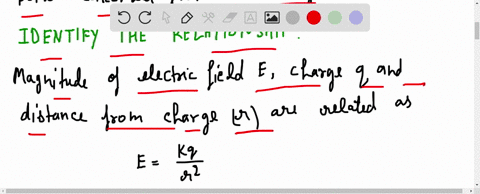 IDENTIFY THE RELATIONSHIP:
Magnitude of electric field E, charge q and
distance from charge (r) are related as
E = Kq
r²